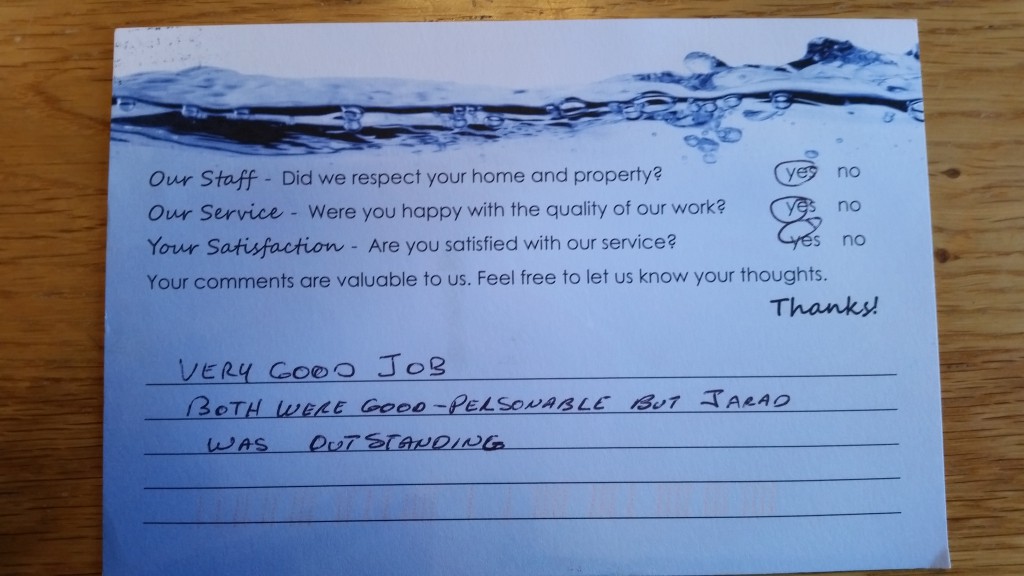 Our Staff - Did we respect your home and property? yes no
Our Service - Were you happy with the quality of our work? yes no
Your Satisfaction - Are you satisfied with our service? yes no
Your comments are valuable to us. Feel free to let us know your thoughts.
Thanks!
VERY GOOD JOB
BOTH WERE GOOD-PERSONABLE BUT JARAD
WAS OUTSTANDING